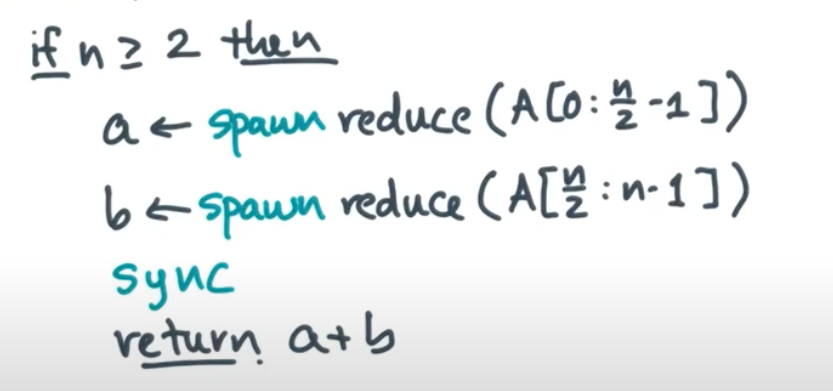 if n ≥ 2 then
a ← spawn reduce (A[0: n/2 -1])
b ← spawn reduce (A[n/2 : n-1])
sync
return a+b